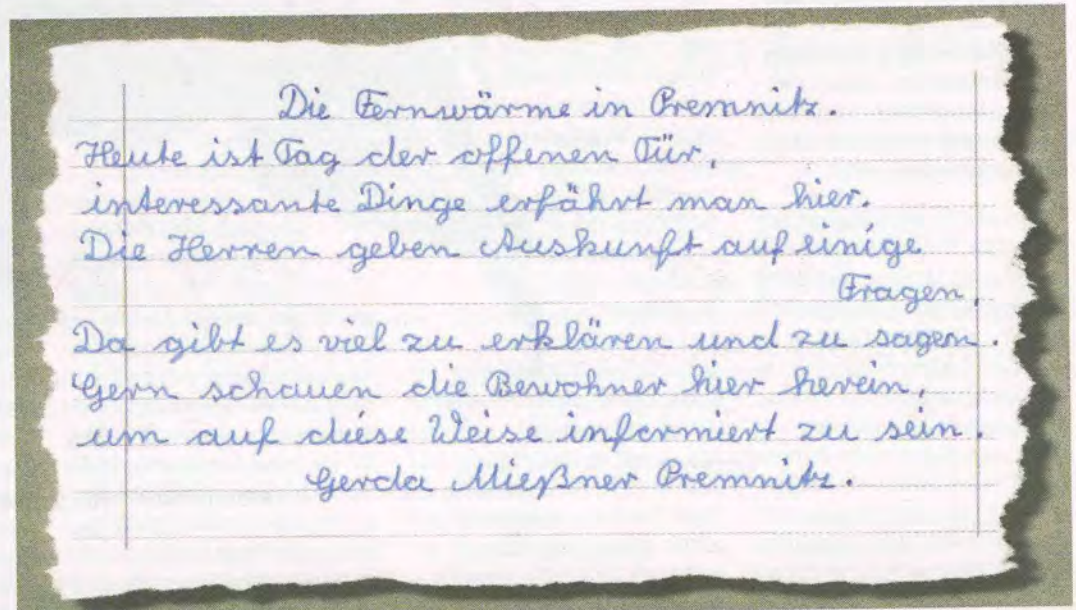 Die Fernwärme in Premnitz.
Heute ist Tag der offenen Tür,
interessante Dinge erfährt man hier.
Die Herren geben Auskunft auf einige
Fragen.
Da gibt es viel zu erklären und zu sagen.
Gern schauen die Bewohner hier herein,
um auf diese Weise informiert zu sein.
Gerda Mießner Premnitz.